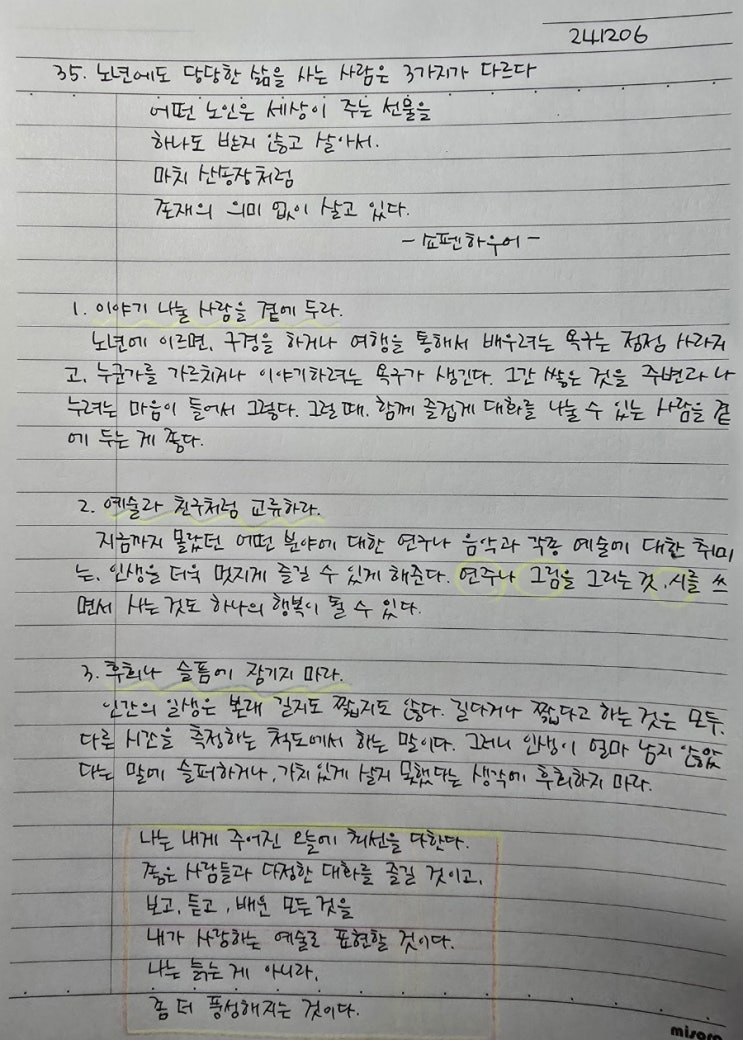 241206
35. 노년에도 당당한 삶을 사는 사람은 3가지가 다르다
어떤 노인은 세상이 주는 선물을
하나도 받지 않고 살아서.
마치 산송장처럼
존재의 의미 없이 살고 있다.
- 쇼펜하우어 -
1. 이야기 나눌 사람을 곁에 두라.
노년에 이르면, 구경을 하거나 여행을 통해서 배우려는 욕구는 점점 사라지
고, 누군가를 가르치거나 이야기하려는 욕구가 생긴다. 그간 쌓은 것을 주변과 나
누려는 마음이 들어서 그렇다. 그럴 때, 함께 즐겁게 대화를 나눌 수 있는 사람을 곁
에 두는 게 좋다.
2. 예술과 친구처럼 교류하라.
지금까지 몰랐던 어떤 분야에 대한 연구나 음악과 각종 예술에 대한 취미
는, 인생을 더욱 멋지게 즐길 수 있게 해준다. 연주나 그림을 그리는 것, 시를 쓰
면서 사는 것도 하나의 행복이 될 수 있다.
3. 후회나 슬픔에 잠기지 마라.
인간의 일생은 본래 길지도 짧지도 않다. 길다거나 짧다고 하는 것은 모두,
다른 시간을 측정하는 척도에서 하는 말이다. 그러니 인생이 얼마 남지 않았
다는 말에 슬퍼하거나, 가치 있게 살지 못했다는 생각에 후회하지 마라.
나는 내게 주어진 오늘에 최선을 다한다.
좋은 사람들과 다정한 대화를 즐길 것이고,
보고, 듣고, 배운 모든 것을
내가 사랑하는 예술로 표현할 것이다.
나는 늙는 게 아니라,
좀 더 풍성해지는 것이다.